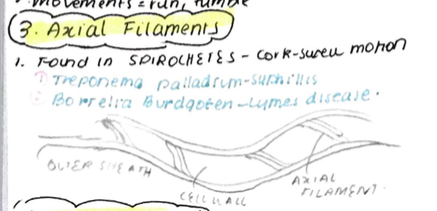 movements = run, tumble
3. Axial Filaments
1. Found in SPIROCHETES - cork-screw motion
① Treponema palladium - syphillis
② Borrelia Burdgoten - Lymes disease.
OUTER SHEATH
CELL WALL
AXIAL FILAMENT.